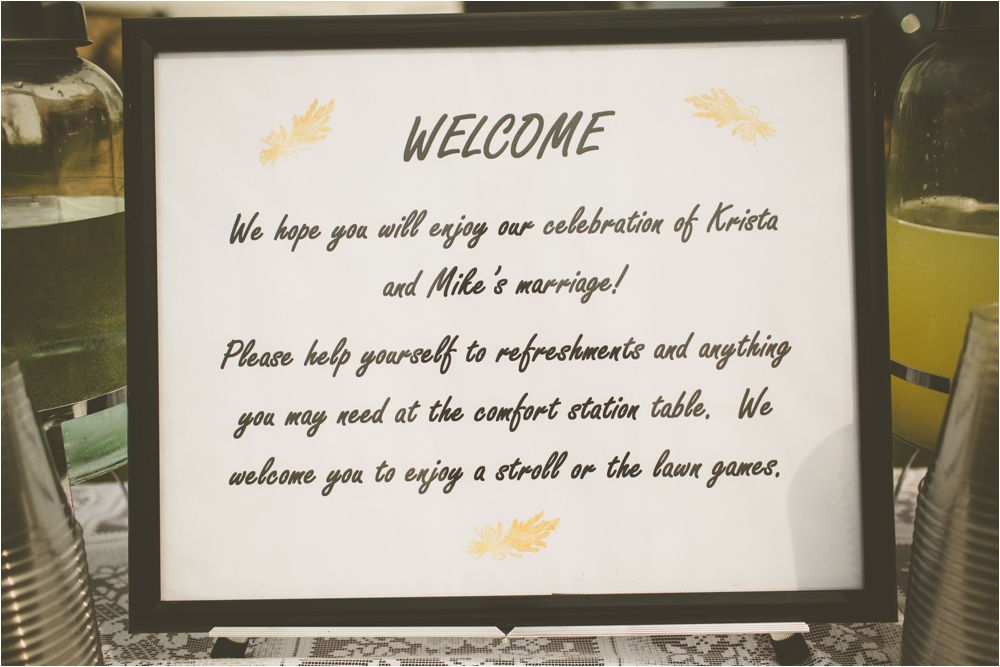 WELCOME
We hope you will enjoy our celebration of Krista
and Mike's marriage!
Please help yourself to refreshments and anything
you may need at the comfort station table. We
welcome you to enjoy a stroll or the lawn games.